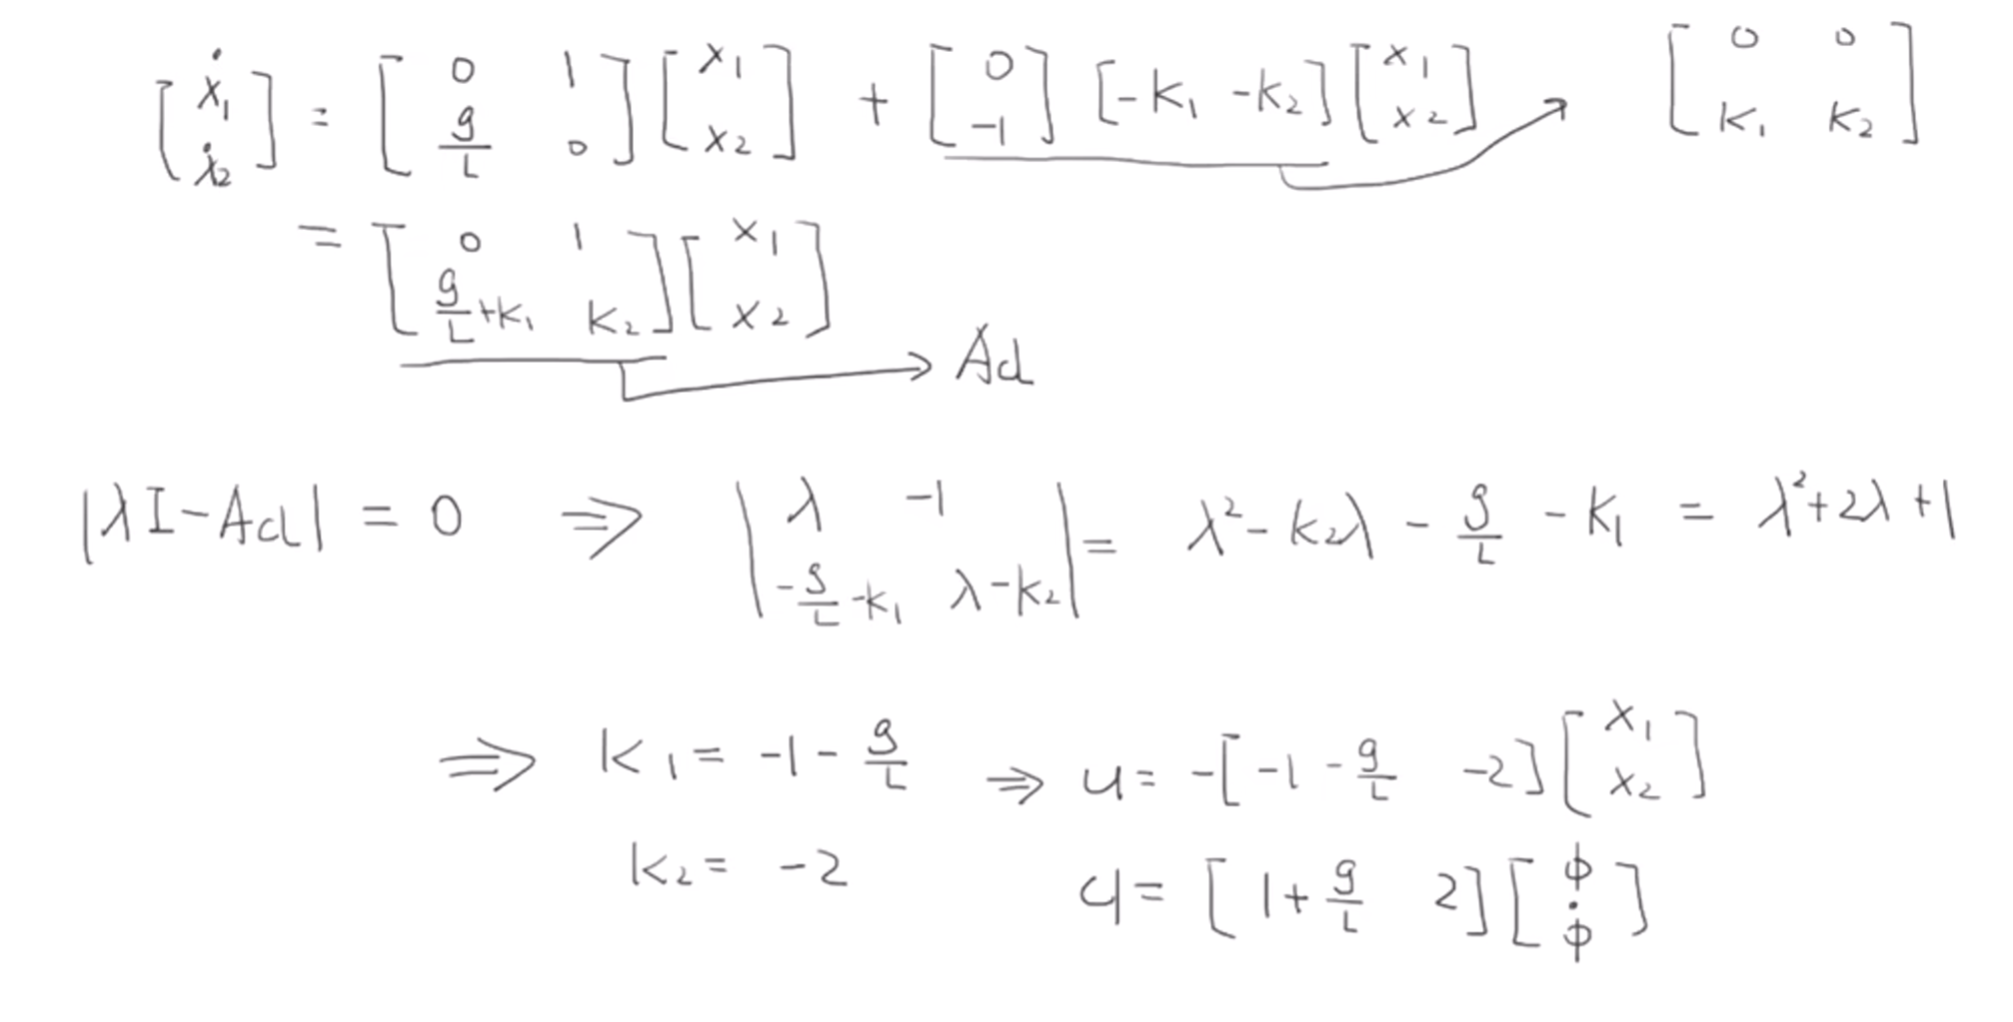 [ẋ₁ ẋ₂] = [0 1; g/L 0] [x₁ x₂] + [0 -1] [-k₁ -k₂] [x₁ x₂] → [0 0; k₁ k₂]
= [0 1; g/L+k₁ k₂] [x₁ x₂] → Acl
|λI-Acl| = 0 ⇒ |λ -1; -g/L-k₁ λ-k₂| = λ²-k₂λ - g/L - k₁ = λ²+2λ+1
⇒ k₁ = -1 - g/L ⇒ u = -[-1 - g/L -2] [x₁ x₂]
k₂ = -2 u = [1 + g/L 2] [ϕ ϕ̇]